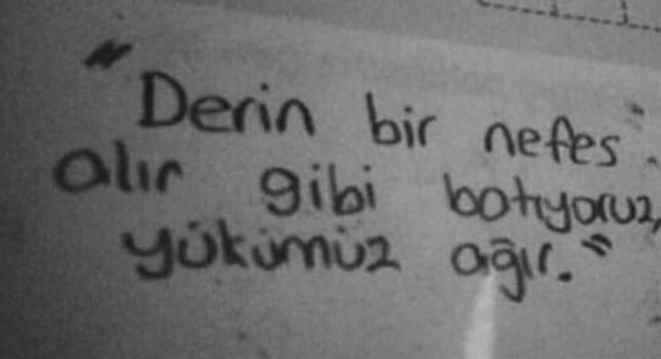 "Derin bir nefes
alır gibi batıyoruz,
yükümüz ağır."